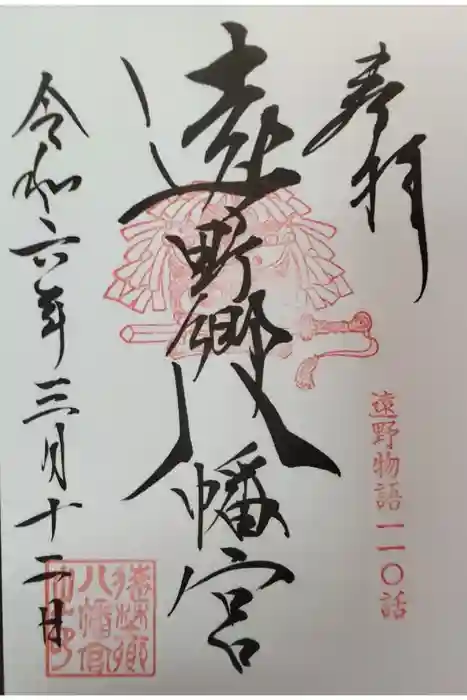 奉拝
遠野物語一一〇話
遠野郷八幡宮
令和六年三月十二日